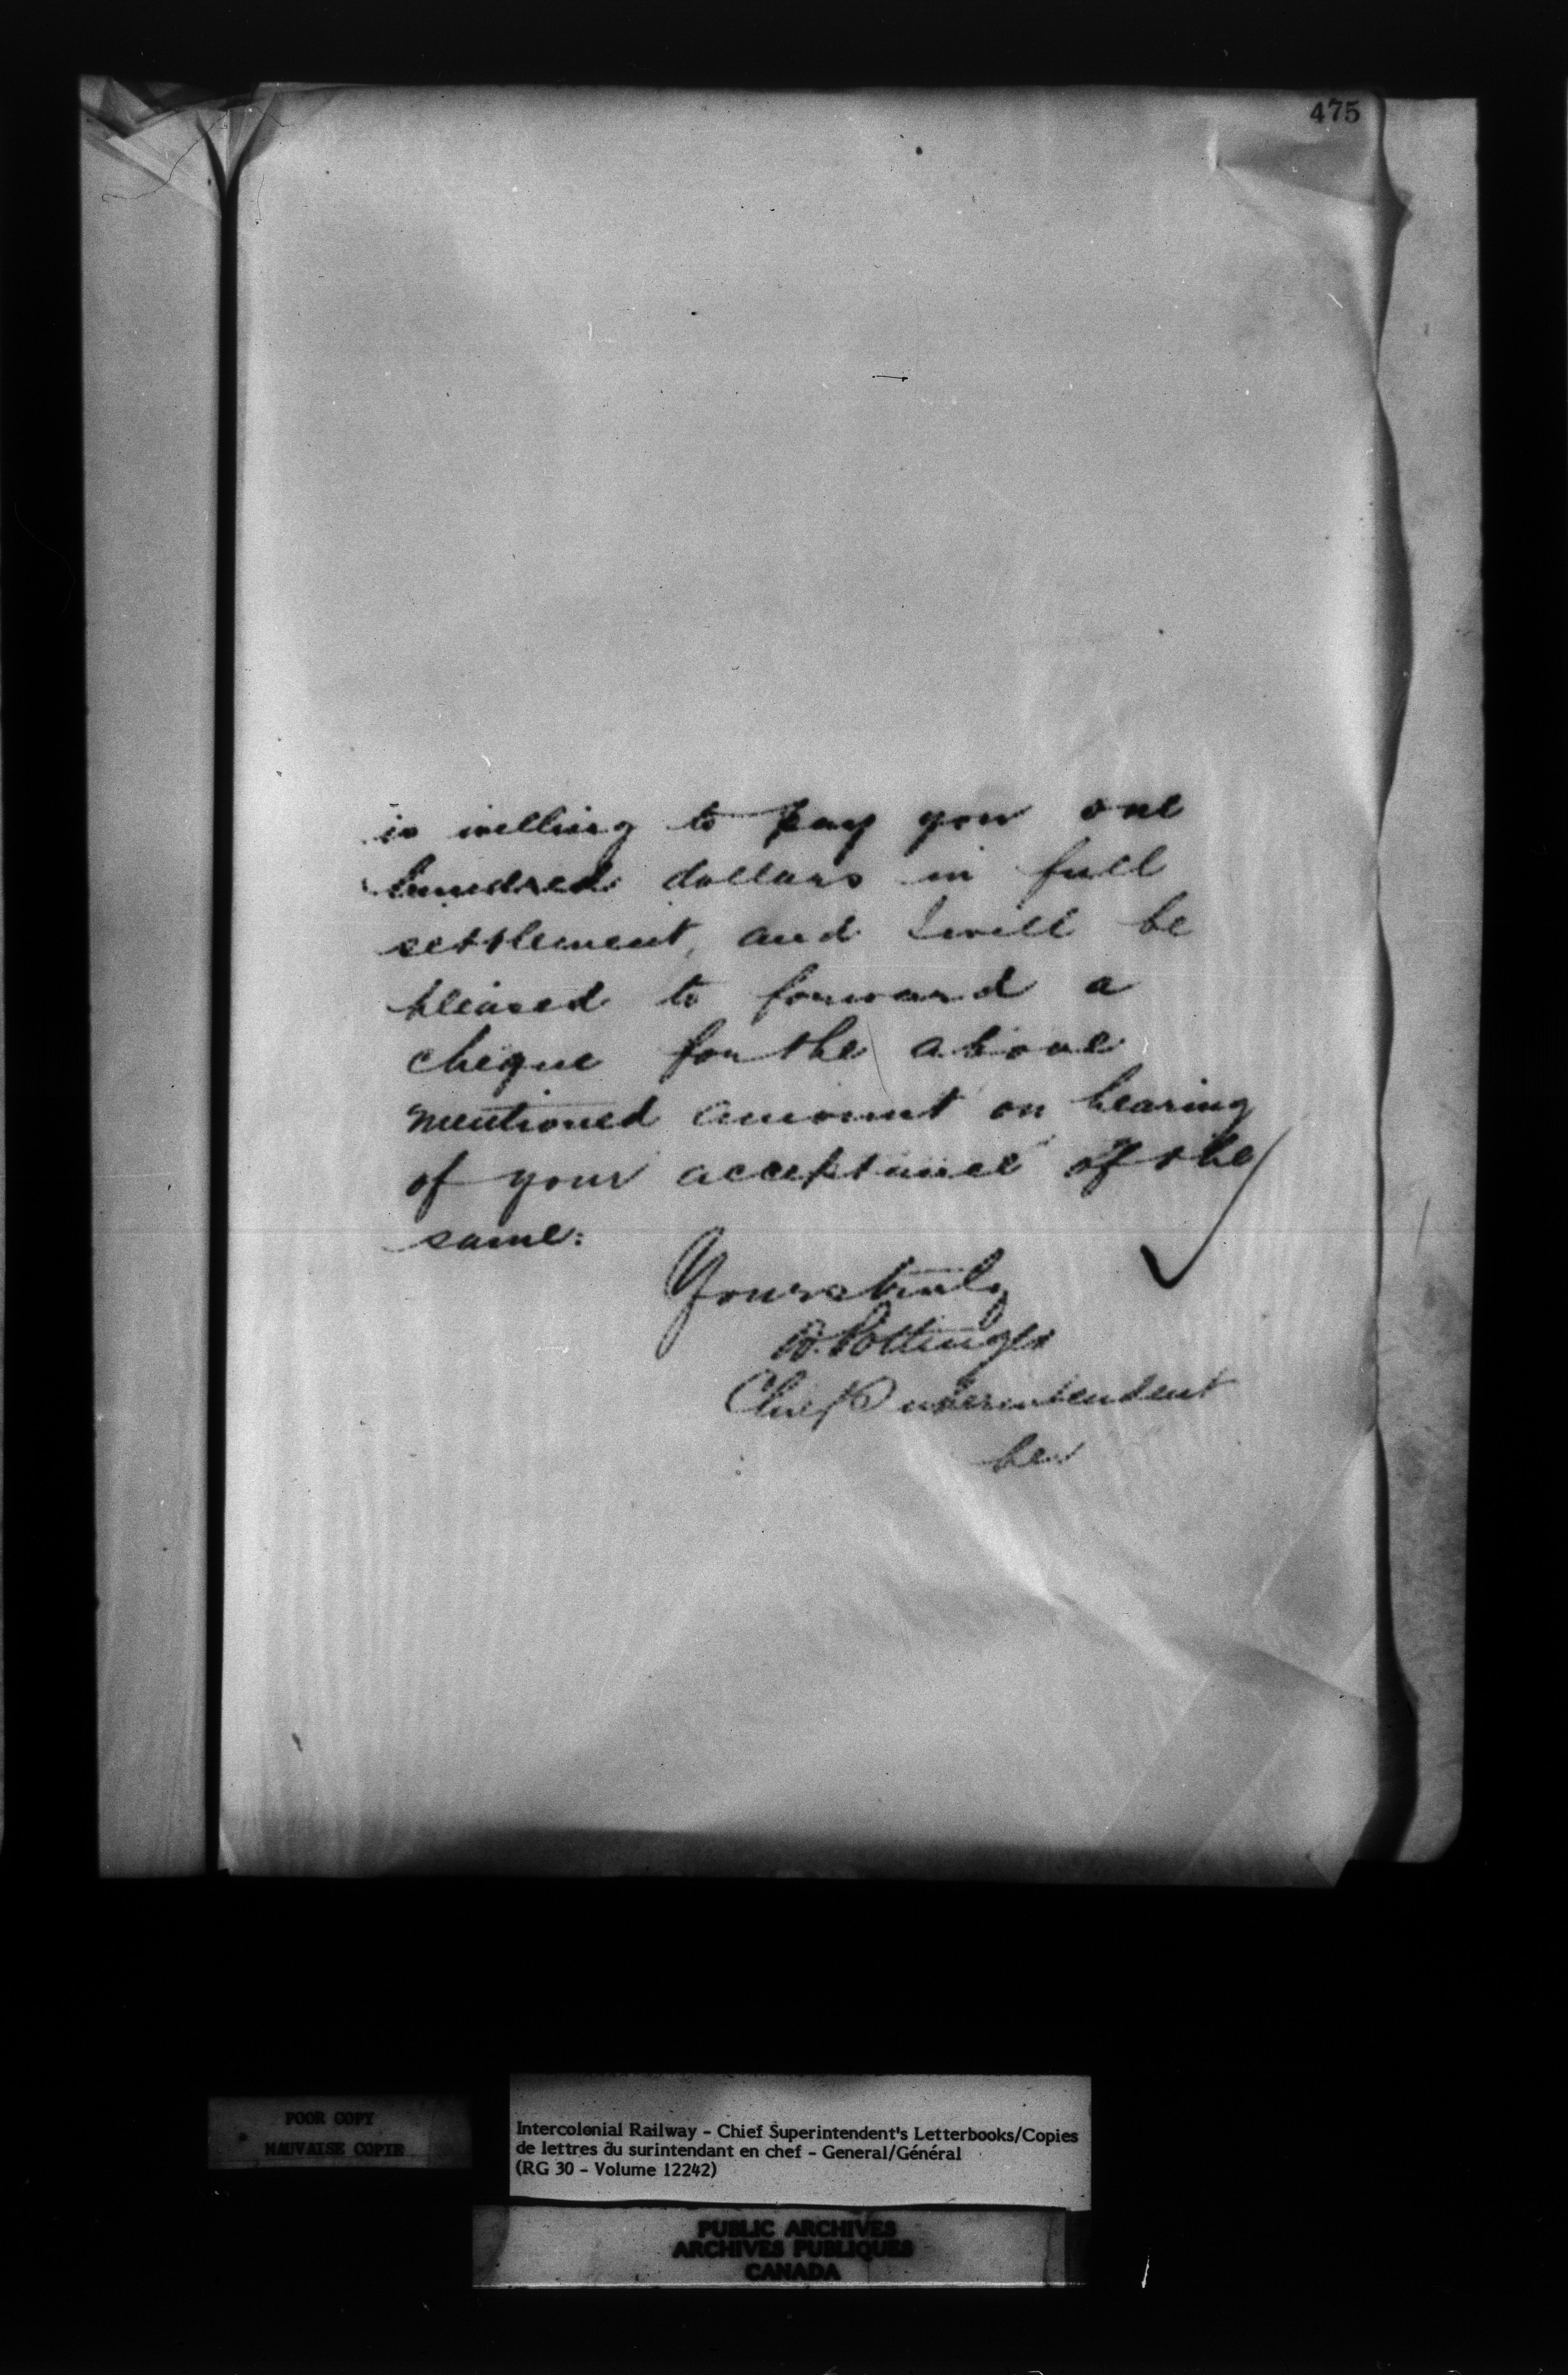 475
is willing to pay you one
hundred dollars in full
settlement, and I will be
pleased to forward a
cheque for the above
mentioned amount on hearing
of your acceptance of the
same.
Yours truly
D. Pottinger
Chief Superintendent
POOR COPY
MAUVAISE COPIE
Intercolonial Railway - Chief Superintendent's Letterbooks/Copies
de lettres du surintendant en chef - General/Général
(RG 30 - Volume 12242)
PUBLIC ARCHIVES
ARCHIVES PUBLIQUES
CANADA